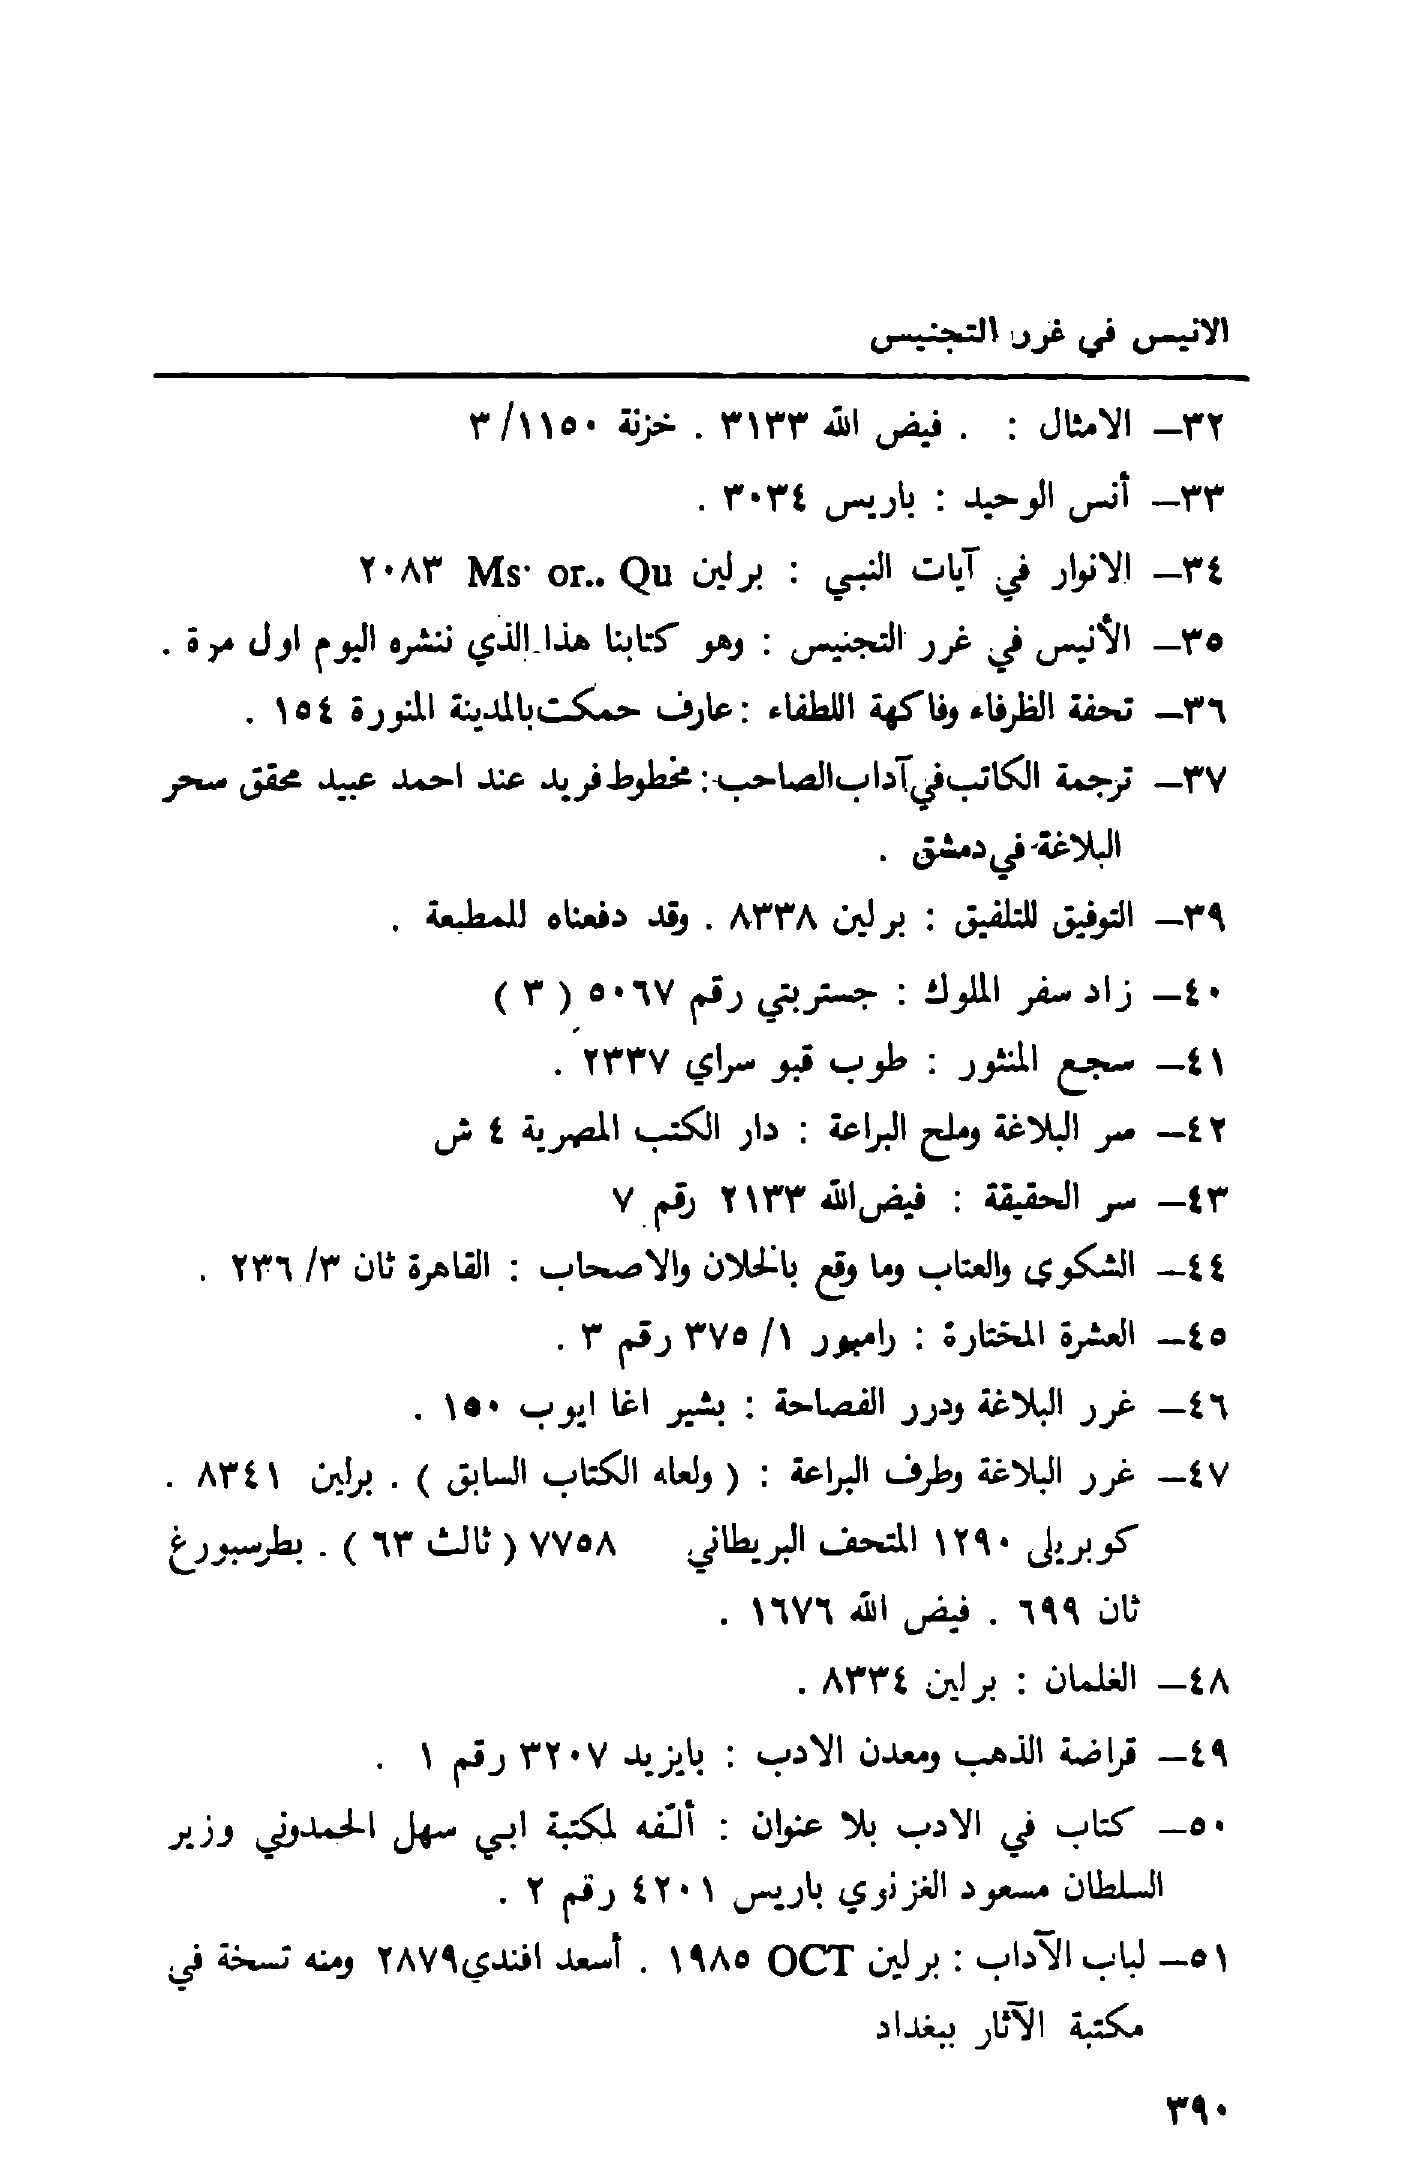 الانيس في غرر التجنيس
٣٢– الامثال : . فيض الله ٣١٣٣ . خزنة ١١٥٠/ ٣
٣٣– أنس الوحيد : باريس ٣٠٣٤ .
٣٤– الانوار في آيات النبي : برلين Ms· or.. Qu ٢٠٨٣
٣٥– الأنيس في غرر التجنيس : وهو كتابنا هذا الذي ننشره اليوم اول مرة .
٣٦– تحفة الظرفاء وفاكهة اللطفاء : عارف حمكت بالمدينة المنورة ١٥٤ .
٣٧– ترجمة الكاتب في آداب الصاحب : مخطوط فريد عند احمد عبيد محقق سحر
البلاغة في دمشق .
٣٩– التوفيق للتلفيق : برلين ٨٣٣٨ . وقد دفعناه للمطبعة .
٤٠– زاد سفر الملوك : جستربتي رقم ٥٠٦٧ ( ٣ )
٤١– سجع المنثور : طوب قبو سراي ٢٣٣٧ .
٤٢– سر البلاغة وملح البراعة : دار الكتب المصرية ٤ ش
٤٣– سر الحقيقة : فيض الله ٢١٣٣ رقم ٧
٤٤– الشكوى والعتاب وما وقع بالخلان والاصحاب : القاهرة ثان ٣/ ٢٣٦ .
٤٥– العشرة المختارة : رامبور ١/ ٣٧٥ رقم ٣ .
٤٦– غرر البلاغة ودرر الفصاحة : بشير اغا ايوب ١٥٠ .
٤٧– غرر البلاغة وطرف البراعة : ( ولعله الكتاب السابق ) . برلين ٨٣٤١ .
كوبريلى ١٢٩٠ المتحف البريطاني ٧٧٥٨ ( ثالث ٦٣ ) . بطرسبورغ
ثان ٦٩٩ . فيض الله ١٦٧٦ .
٤٨– الغلمان : برلين ٨٣٣٤ .
٤٩– قراضة الذهب ومعدن الادب : بايزيد ٣٢٠٧ رقم ١ .
٥٠– كتاب في الادب بلا عنوان : ألّفه لمكتبة ابي سهل الحمدوني وزير
السلطان مسعود الغزنوي باريس ٤٢٠١ رقم ٢ .
٥١– لباب الآداب : برلين OCT ١٩٨٥ . أسعد افندي ٢٨٧٩ ومنه تسخة في
مكتبة الآثار ببغداد
٣٩٠